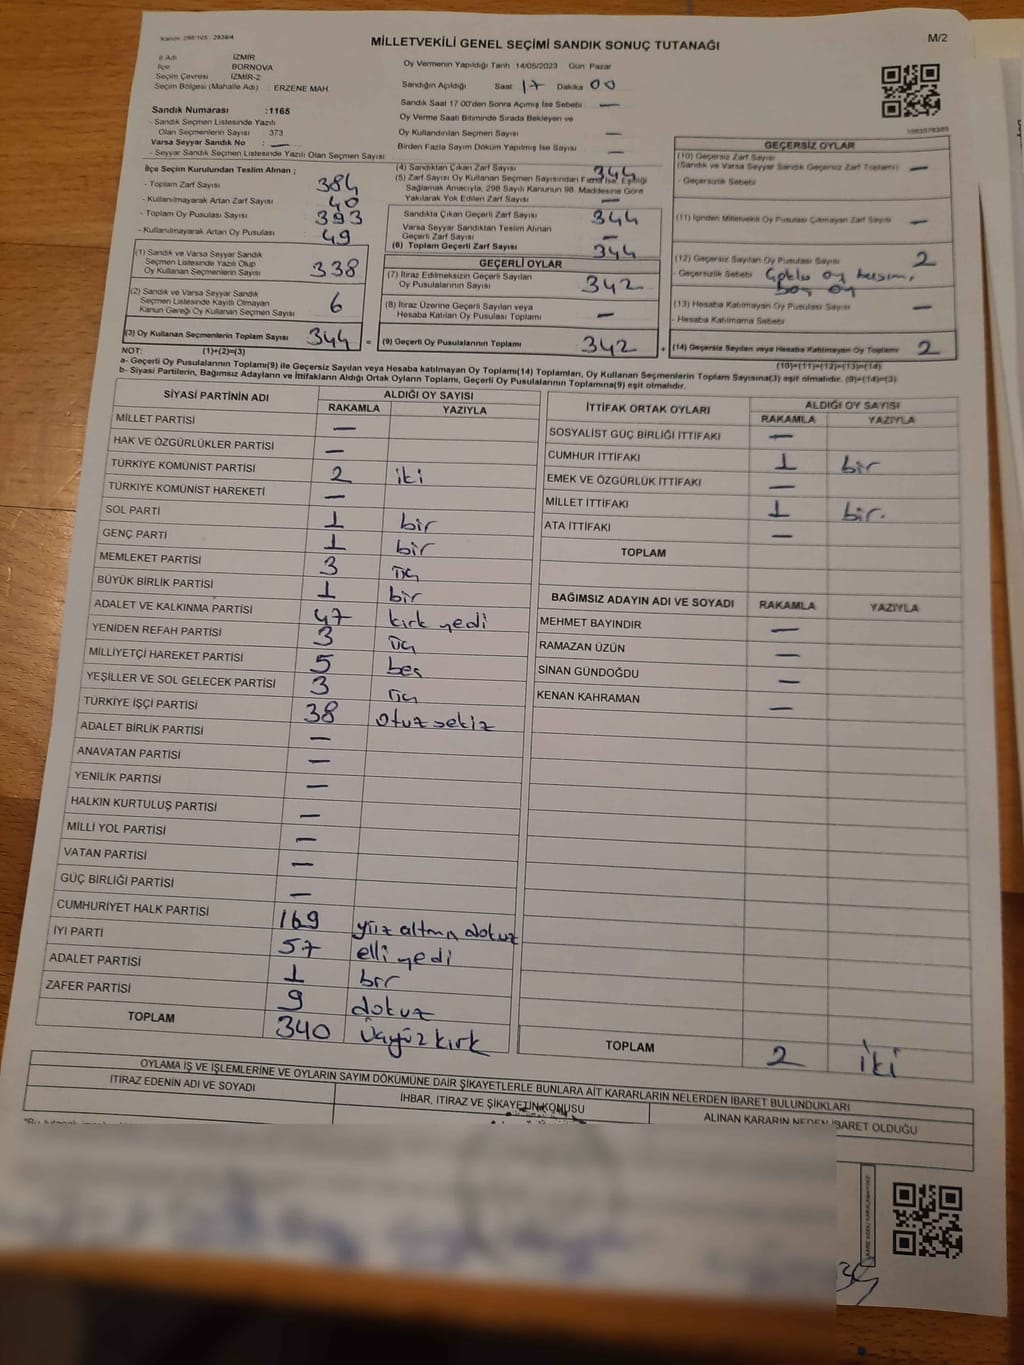 Kanun: 298/105 , 2839/4
MİLLETVEKİLİ GENEL SEÇİMİ SANDIK SONUÇ TUTANAĞI
M/2
İl Adı İZMİR
İlçe BORNOVA
Seçim Çevresi İZMİR-2
Seçim Bölgesi (Mahalle Adı) ERZENE MAH.
Sandık Numarası :1165
- Sandık Seçmen Listesinde Yazılı
Olan Seçmenlerin Sayısı 373
Varsa Seyyar Sandık No —
- Seyyar Sandık Seçmen Listesinde Yazılı Olan Seçmen Sayısı
Oy Vermenin Yapıldığı Tarih 14/05/2023 Gün Pazar
Sandığın Açıldığı Saat 17 Dakika 00
Sandık Saat 17.00'den Sonra Açılmış İse Sebebi —
Oy Verme Saati Bitiminde Sırada Bekleyen ve
Oy Kullandırılan Seçmen Sayısı —
Birden Fazla Sayım Döküm Yapılmış İse Sayısı —
İlçe Seçim Kurulundan Teslim Alınan ;
- Toplam Zarf Sayısı 384
- Kullanılmayarak Artan Zarf Sayısı 40
- Toplam Oy Pusulası Sayısı 393
- Kullanılmayarak Artan Oy Pusulası 49
(1) Sandık ve Varsa Seyyar Sandık
Seçmen Listesinde Yazılı Olup
Oy Kullanan Seçmenlerin Sayısı 338
(2) Sandık ve Varsa Seyyar Sandık
Seçmen Listesinde Kayıtlı Olmayan
Kanun Gereği Oy Kullanan Seçmen Sayısı 6
(3) Oy Kullanan Seçmenlerin Toplam Sayısı 344
(4) Sandıktan Çıkan Zarf Sayısı 344
(5) Zarf Sayısı Oy Kullanan Seçmen Sayısından Fazla İse, Eşitliği
Sağlamak Amacıyla, 298 Sayılı Kanunun 98. Maddesine Göre
Yakılarak Yok Edilen Zarf Sayısı —
Sandıkta Çıkan Geçerli Zarf Sayısı 344
Varsa Seyyar Sandıktan Teslim Alınan
Geçerli Zarf Sayısı —
(6) Toplam Geçerli Zarf Sayısı 344
GEÇERLİ OYLAR
(7) İtiraz Edilmeksizin Geçerli Sayılan
Oy Pusulalarının Sayısı 342
(8) İtiraz Üzerine Geçerli Sayılan veya
Hesaba Katılan Oy Pusulası Toplamı —
= (9) Geçerli Oy Pusulalarının Toplamı 342
1083576385
GEÇERSİZ OYLAR
(10) Geçersiz Zarf Sayısı
(Sandık ve Varsa Seyyar Sandık Geçersiz Zarf Toplamı) —
- Geçersizlik Sebebi
(11) İçinden Milletvekili Oy Pusulası Çıkmayan Zarf Sayısı —
(12) Geçersiz Sayılan Oy Pusulası Sayısı 2
- Geçersizlik Sebebi Çoklu oy basımı,
Boş oy
(13) Hesaba Katılmayan Oy Pusulası Sayısı —
- Hesaba Katılmama Sebebi
+ (14) Geçersiz Sayılan veya Hesaba Katılmayan Oy Toplamı 2
NOT: (1)+(2)=(3) (10)+(11)+(12)+(13)=(14)
a- Geçerli Oy Pusulalarının Toplamı(9) ile Geçersiz Sayılan veya Hesaba katılmayan Oy Toplamı(14) Toplamları, Oy Kullanan Seçmenlerin Toplam Sayısına(3) eşit olmalıdır. (9)+(14)=(3)
b- Siyasi Partilerin, Bağımsız Adayların ve İttifakların Aldığı Ortak Oyların Toplamı, Geçerli Oy Pusulalarının Toplamına(9) eşit olmalıdır.
SİYASİ PARTİNİN ADI ALDIĞI OY SAYISI
RAKAMLA YAZIYLA
MİLLET PARTİSİ —
HAK VE ÖZGÜRLÜKLER PARTİSİ —
TÜRKİYE KOMÜNİST PARTİSİ 2 iki
TÜRKİYE KOMÜNİST HAREKETİ —
SOL PARTİ 1 bir
GENÇ PARTİ 1 bir
MEMLEKET PARTİSİ 3 üç
BÜYÜK BİRLİK PARTİSİ 1 bir
ADALET VE KALKINMA PARTİSİ 47 kırk yedi
YENİDEN REFAH PARTİSİ 3 üç
MİLLİYETÇİ HAREKET PARTİSİ 5 beş
YEŞİLLER VE SOL GELECEK PARTİSİ 3 üç
TÜRKİYE İŞÇİ PARTİSİ 38 otuz sekiz
ADALET BİRLİK PARTİSİ —
ANAVATAN PARTİSİ —
YENİLİK PARTİSİ —
HALKIN KURTULUŞ PARTİSİ —
MİLLİ YOL PARTİSİ —
VATAN PARTİSİ —
GÜÇ BİRLİĞİ PARTİSİ —
CUMHURİYET HALK PARTİSİ 169 yüz altmış dokuz
İYİ PARTİ 57 elli yedi
ADALET PARTİSİ 1 bir
ZAFER PARTİSİ 9 dokuz
TOPLAM 340 üçyüz kırk
İTTİFAK ORTAK OYLARI ALDIĞI OY SAYISI
RAKAMLA YAZIYLA
SOSYALİST GÜÇ BİRLİĞİ İTTİFAKI —
CUMHUR İTTİFAKI 1 bir
EMEK VE ÖZGÜRLÜK İTTİFAKI —
MİLLET İTTİFAKI 1 bir.
ATA İTTİFAKI —
TOPLAM
BAĞIMSIZ ADAYIN ADI VE SOYADI RAKAMLA YAZIYLA
MEHMET BAYINDIR —
RAMAZAN ÜZÜN —
SİNAN GÜNDOĞDU —
KENAN KAHRAMAN —
TOPLAM 2 iki
OYLAMA İŞ VE İŞLEMLERİNE VE OYLARIN SAYIM DÖKÜMÜNE DAİR ŞİKAYETLERLE BUNLARA AİT KARARLARIN NELERDEN İBARET BULUNDUKLARI
İTİRAZ EDENİN ADI VE SOYADI İHBAR, İTİRAZ VE ŞİKAYETİN KONUSU ALINAN KARARIN NEDEN İBARET OLDUĞU